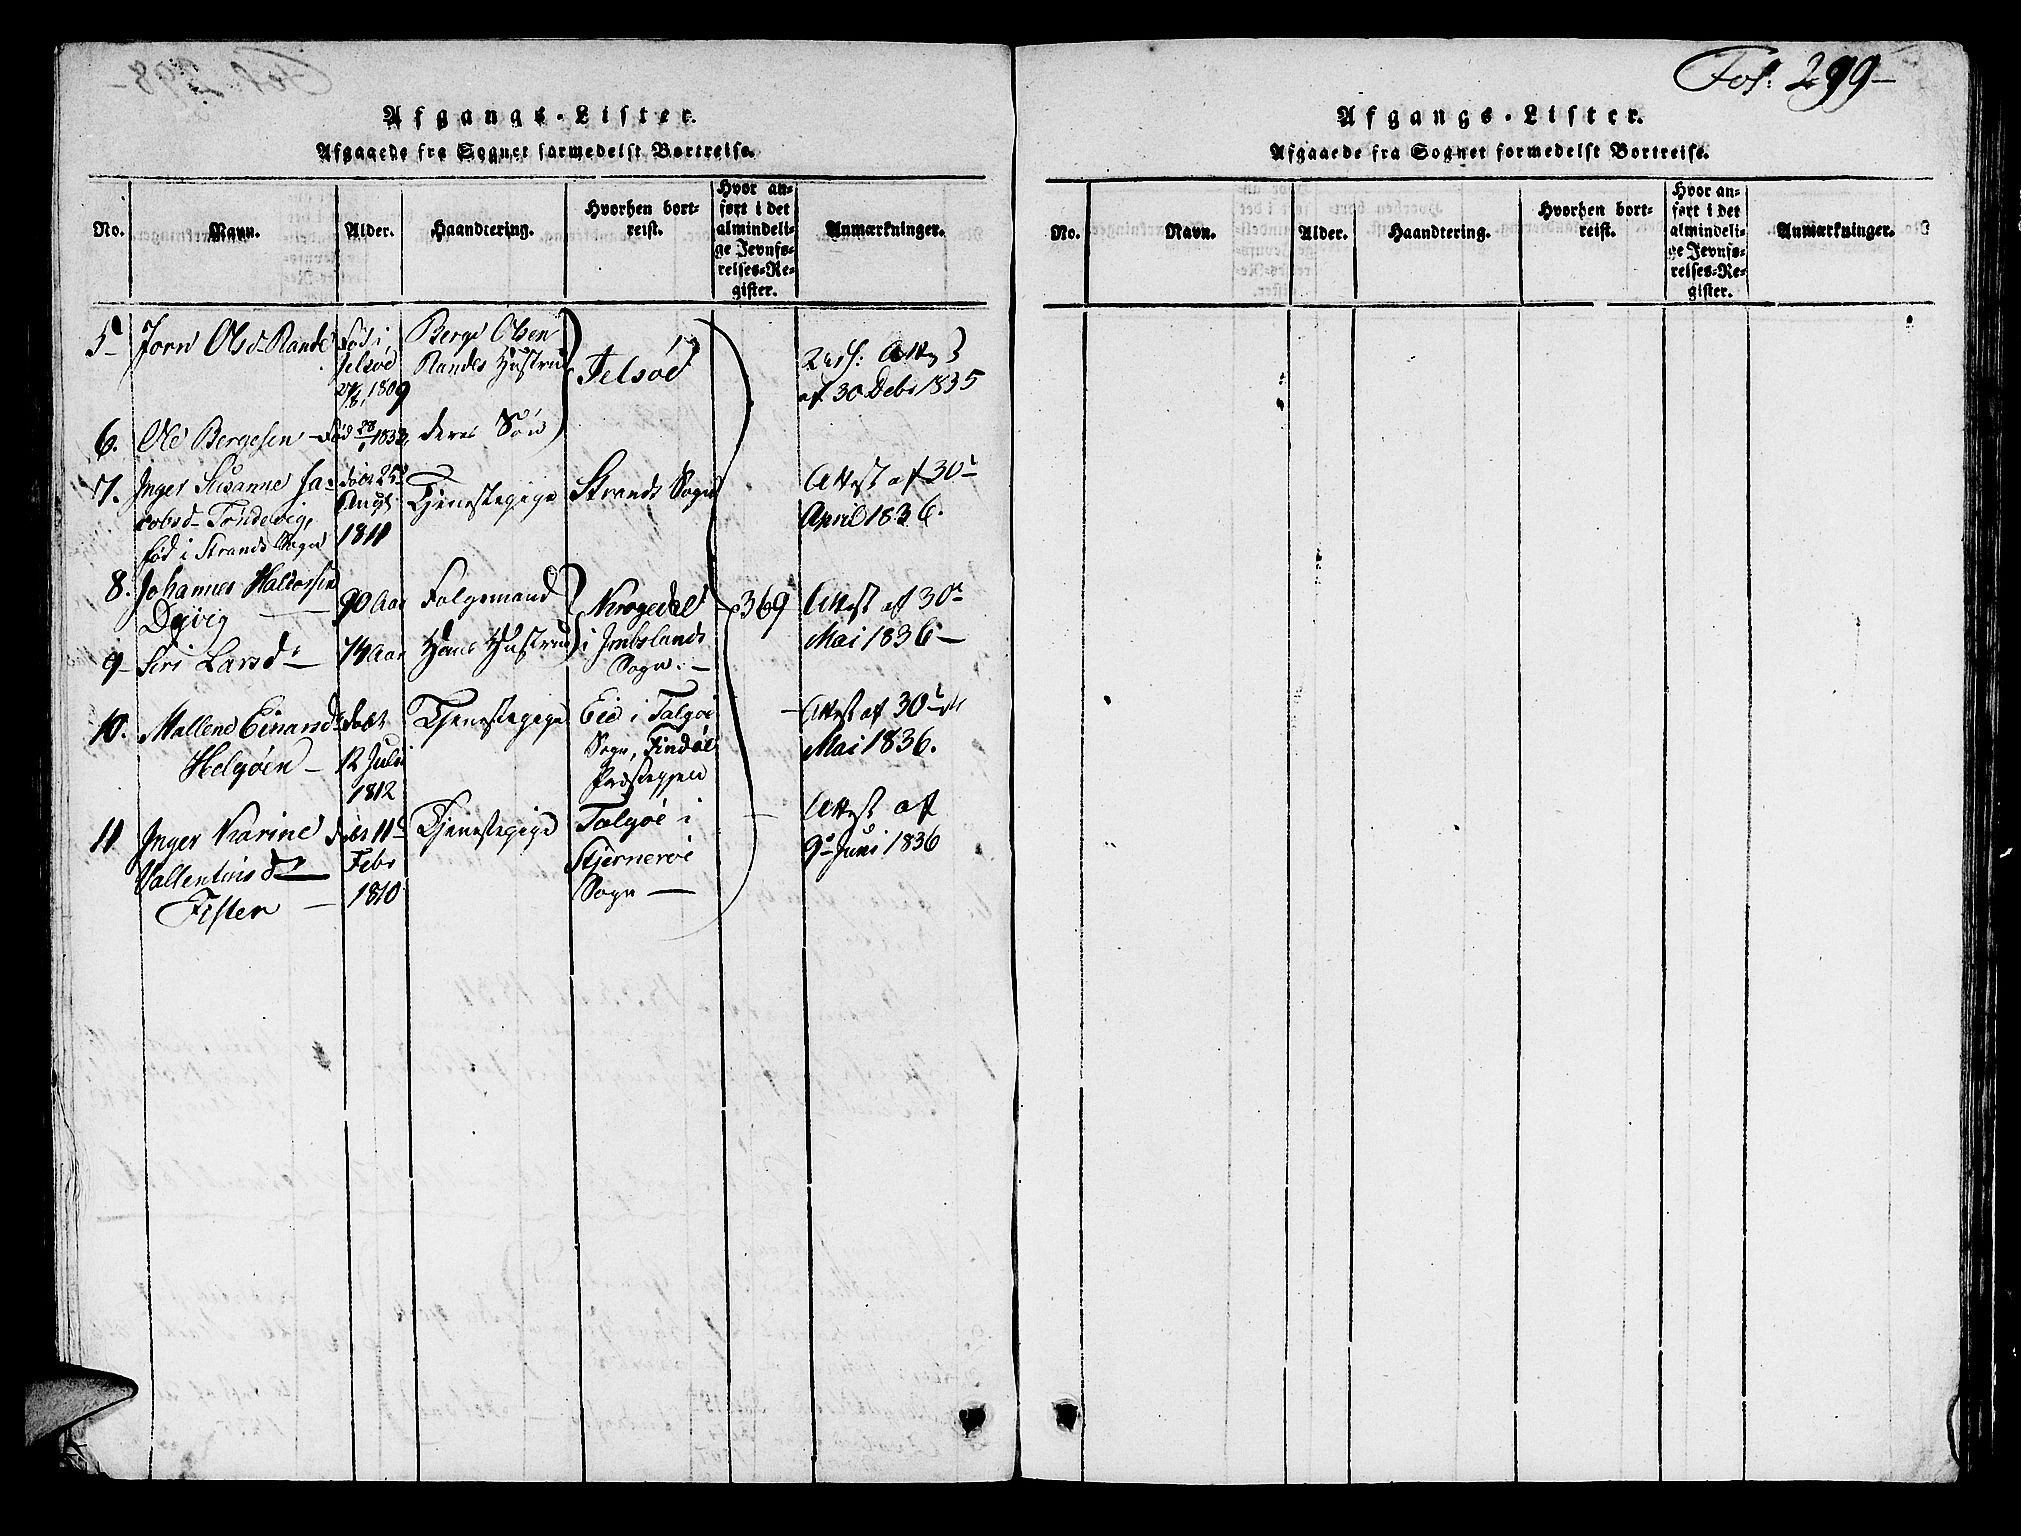 Afgangs-Lister.
Afgaaede fra Sognet formedelst Bortreise.
No.
Navn.
Alder.
Haandtering.
Hvorhen bort-
reist.
Hvor an-
ført i det
almindeli-
ge Jevnfø-
relses-Re-
gister.
Anmærkninger.
5
Jorn Olsd Rande
Fød i
Jelsøe
1809
Berge Olsen
Randes Hustrue
Jelsøe
Attest
af 30 Debr 1835
6.
Ole Bergesen
Fød 28
deres Søn
7.
Inger Susanne Ja-
cobsd Tøndevig,
fød i Strands Sogn
født 25
Augst
1811
Tjenestepige
Strands Sogn
Attest af 30
April 1836.
8.
Johannes Haldorsen
Døvig
90 Aar
Folgemand
Nørgedal
i Imbslands
Sogn.
369
Attest af 30
Mai 1836
9
Siri Larsd
74 Aar
Hans Hustrue
10.
Mallene Einarsd
Helgøen
født
12 Juli
1812
Tjenestepige
Eie i Talgøe
Sogn, Findøe
Præstegjeld
Attest af 30
Mai 1836.
11
Inger Karine
Vallentinsd
Fister
født 11
Febr
1810
Tjenestepige
Talgøe i
Stjernerøe
Sogn
Attest af
9 Juni 1836
Fol: 299
Afgangs-Lister.
Afgaaede fra Sognet formedelst Bortreise.
No.
Navn.
Alder.
Haandtering.
Hvorhen bort-
reist.
Hvor an-
ført i det
almindeli-
ge Jevnfø-
relses-Re-
gister.
Anmærkninger.